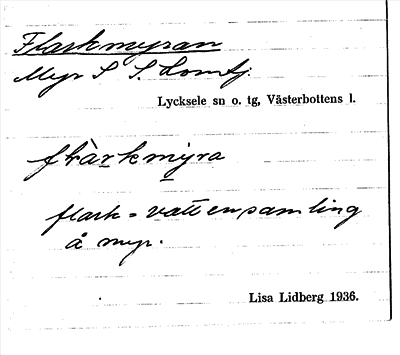 Flarkmyran
Myr S S. Lomtj.
Lycksele sn o. tg, Västerbottens l.
flàrkmyra
flark = vattensamling
å myr.
Lisa Lidberg 1936.